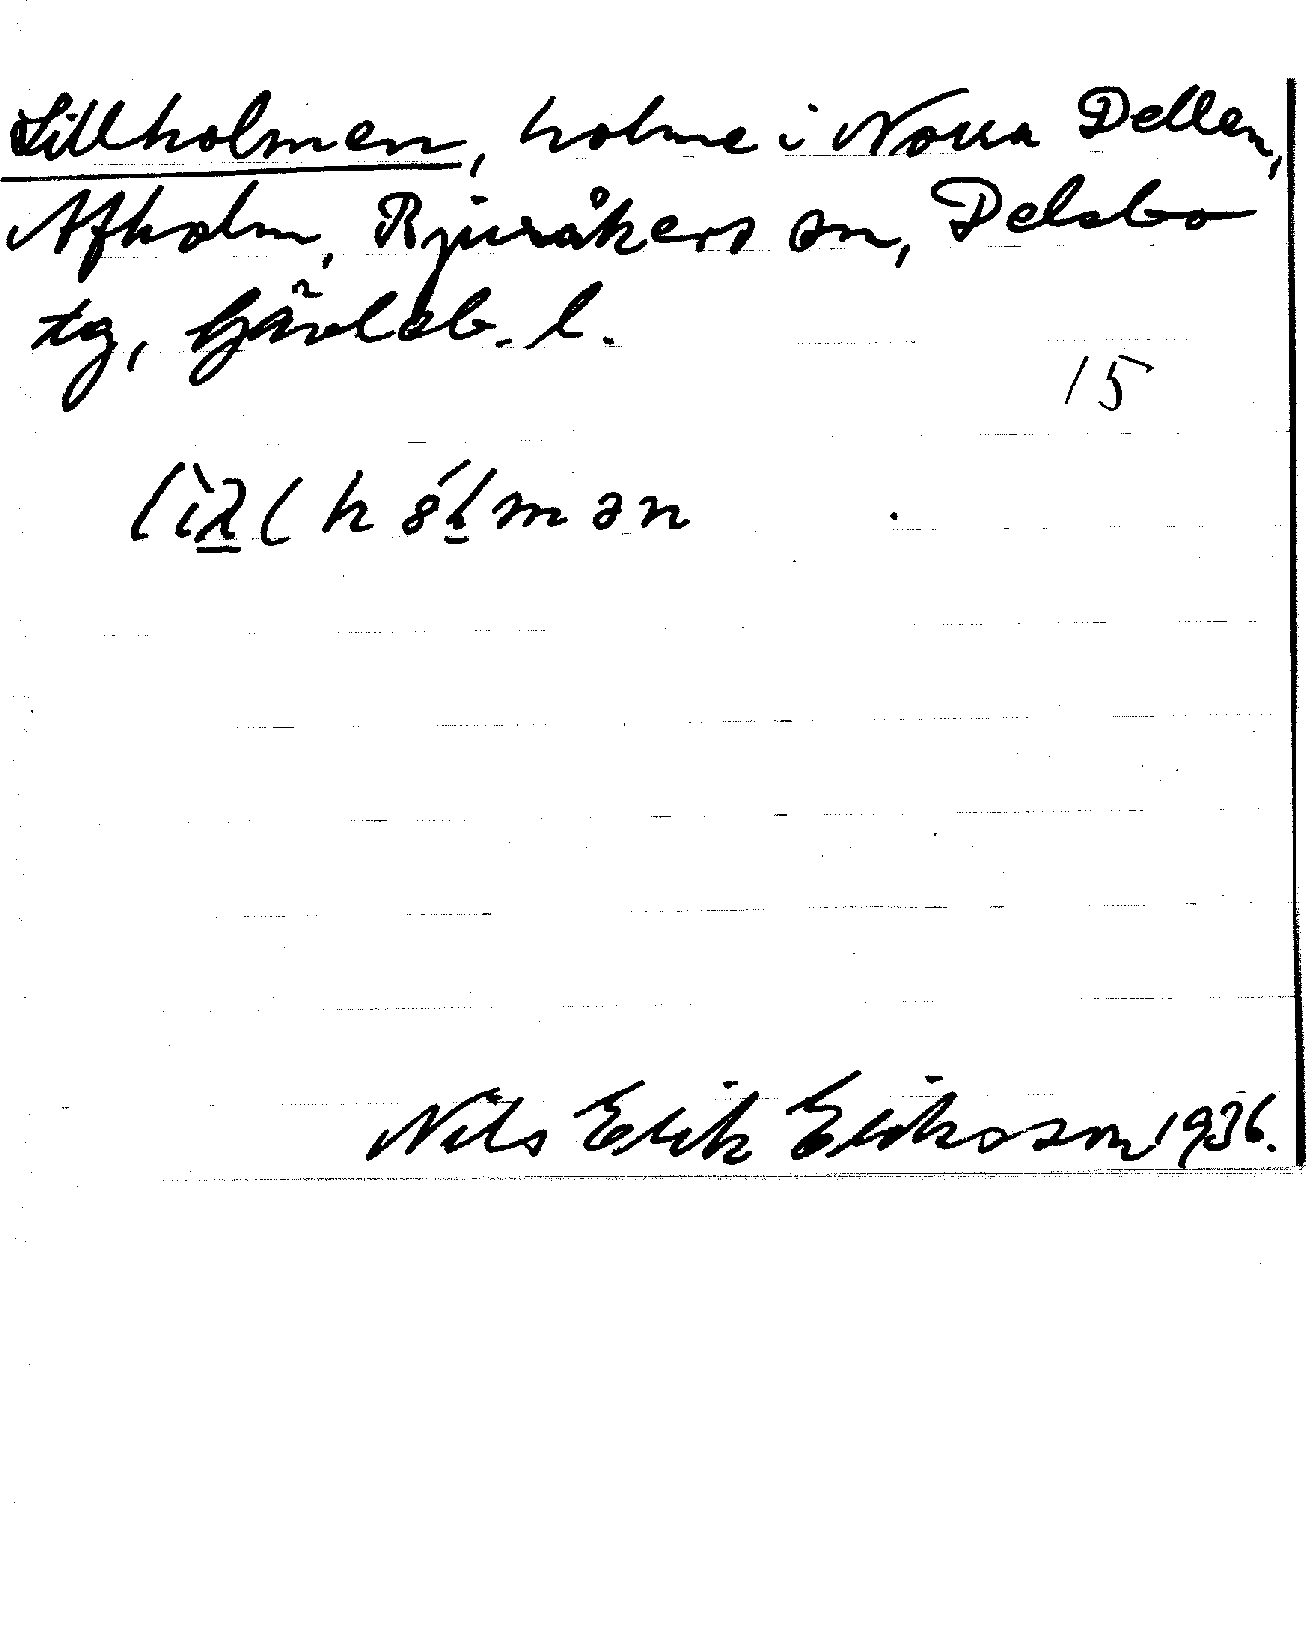 Lillholmen, holme i Norra Dellen,
Afholm, Bjuråkers sn, Delsbo
tg, Gävleb. l.
15
Nils Erik Eriksson 1936.